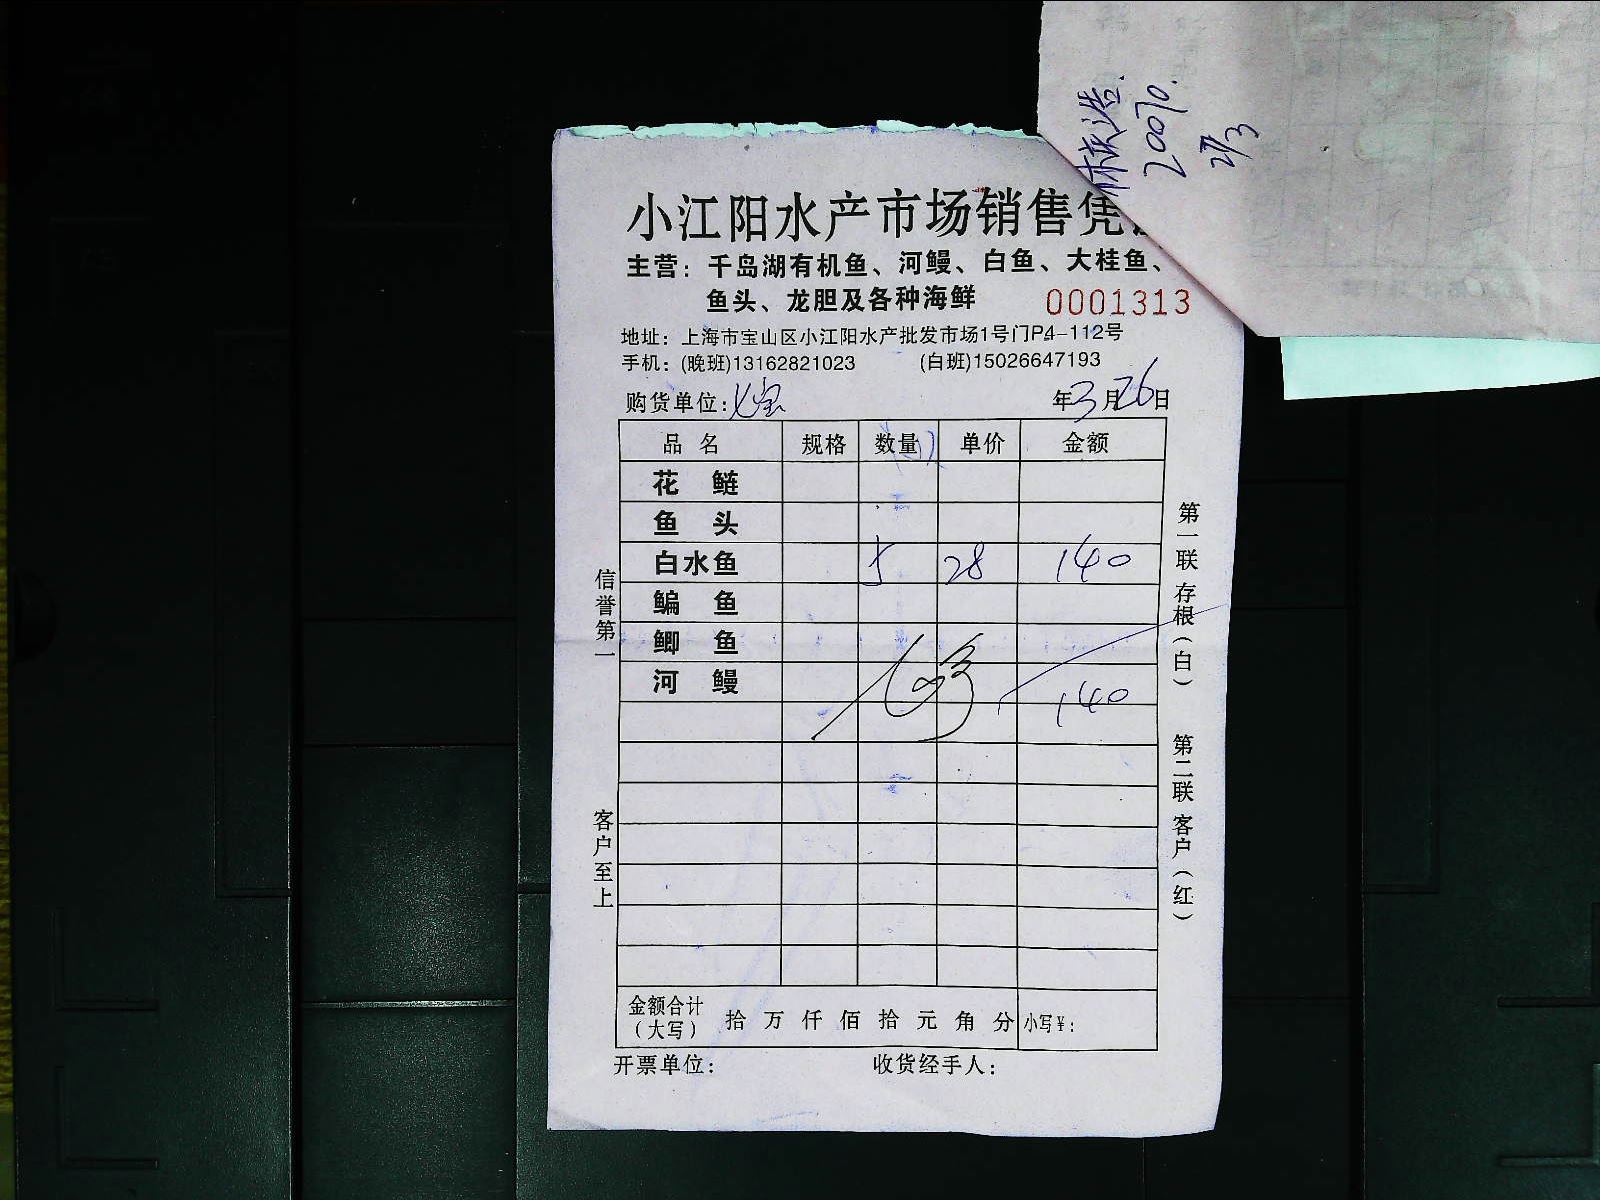 小江阳水产市场销售凭
主营：千岛湖有机鱼、河鳗、白鱼、大桂鱼、
鱼头、龙胆及各种海鲜
0001313
地址：上海市宝山区小江阳水产批发市场1号门P4-112号
手机：(晚班)13162821023 (白班)15026647193
购货单位：七宝 年3月26日
品 名 规格 数量 单价 金额
花 鲢
鱼 头
白水鱼 5 28 140
鳊 鱼
鲫 鱼
河 鳗 140
金额合计（大写） 拾 万 仟 佰 拾 元 角 分 小写￥：
开票单位： 收货经手人：
信誉第一
客户至上
第一联 存根（白）
第二联 客户（红）